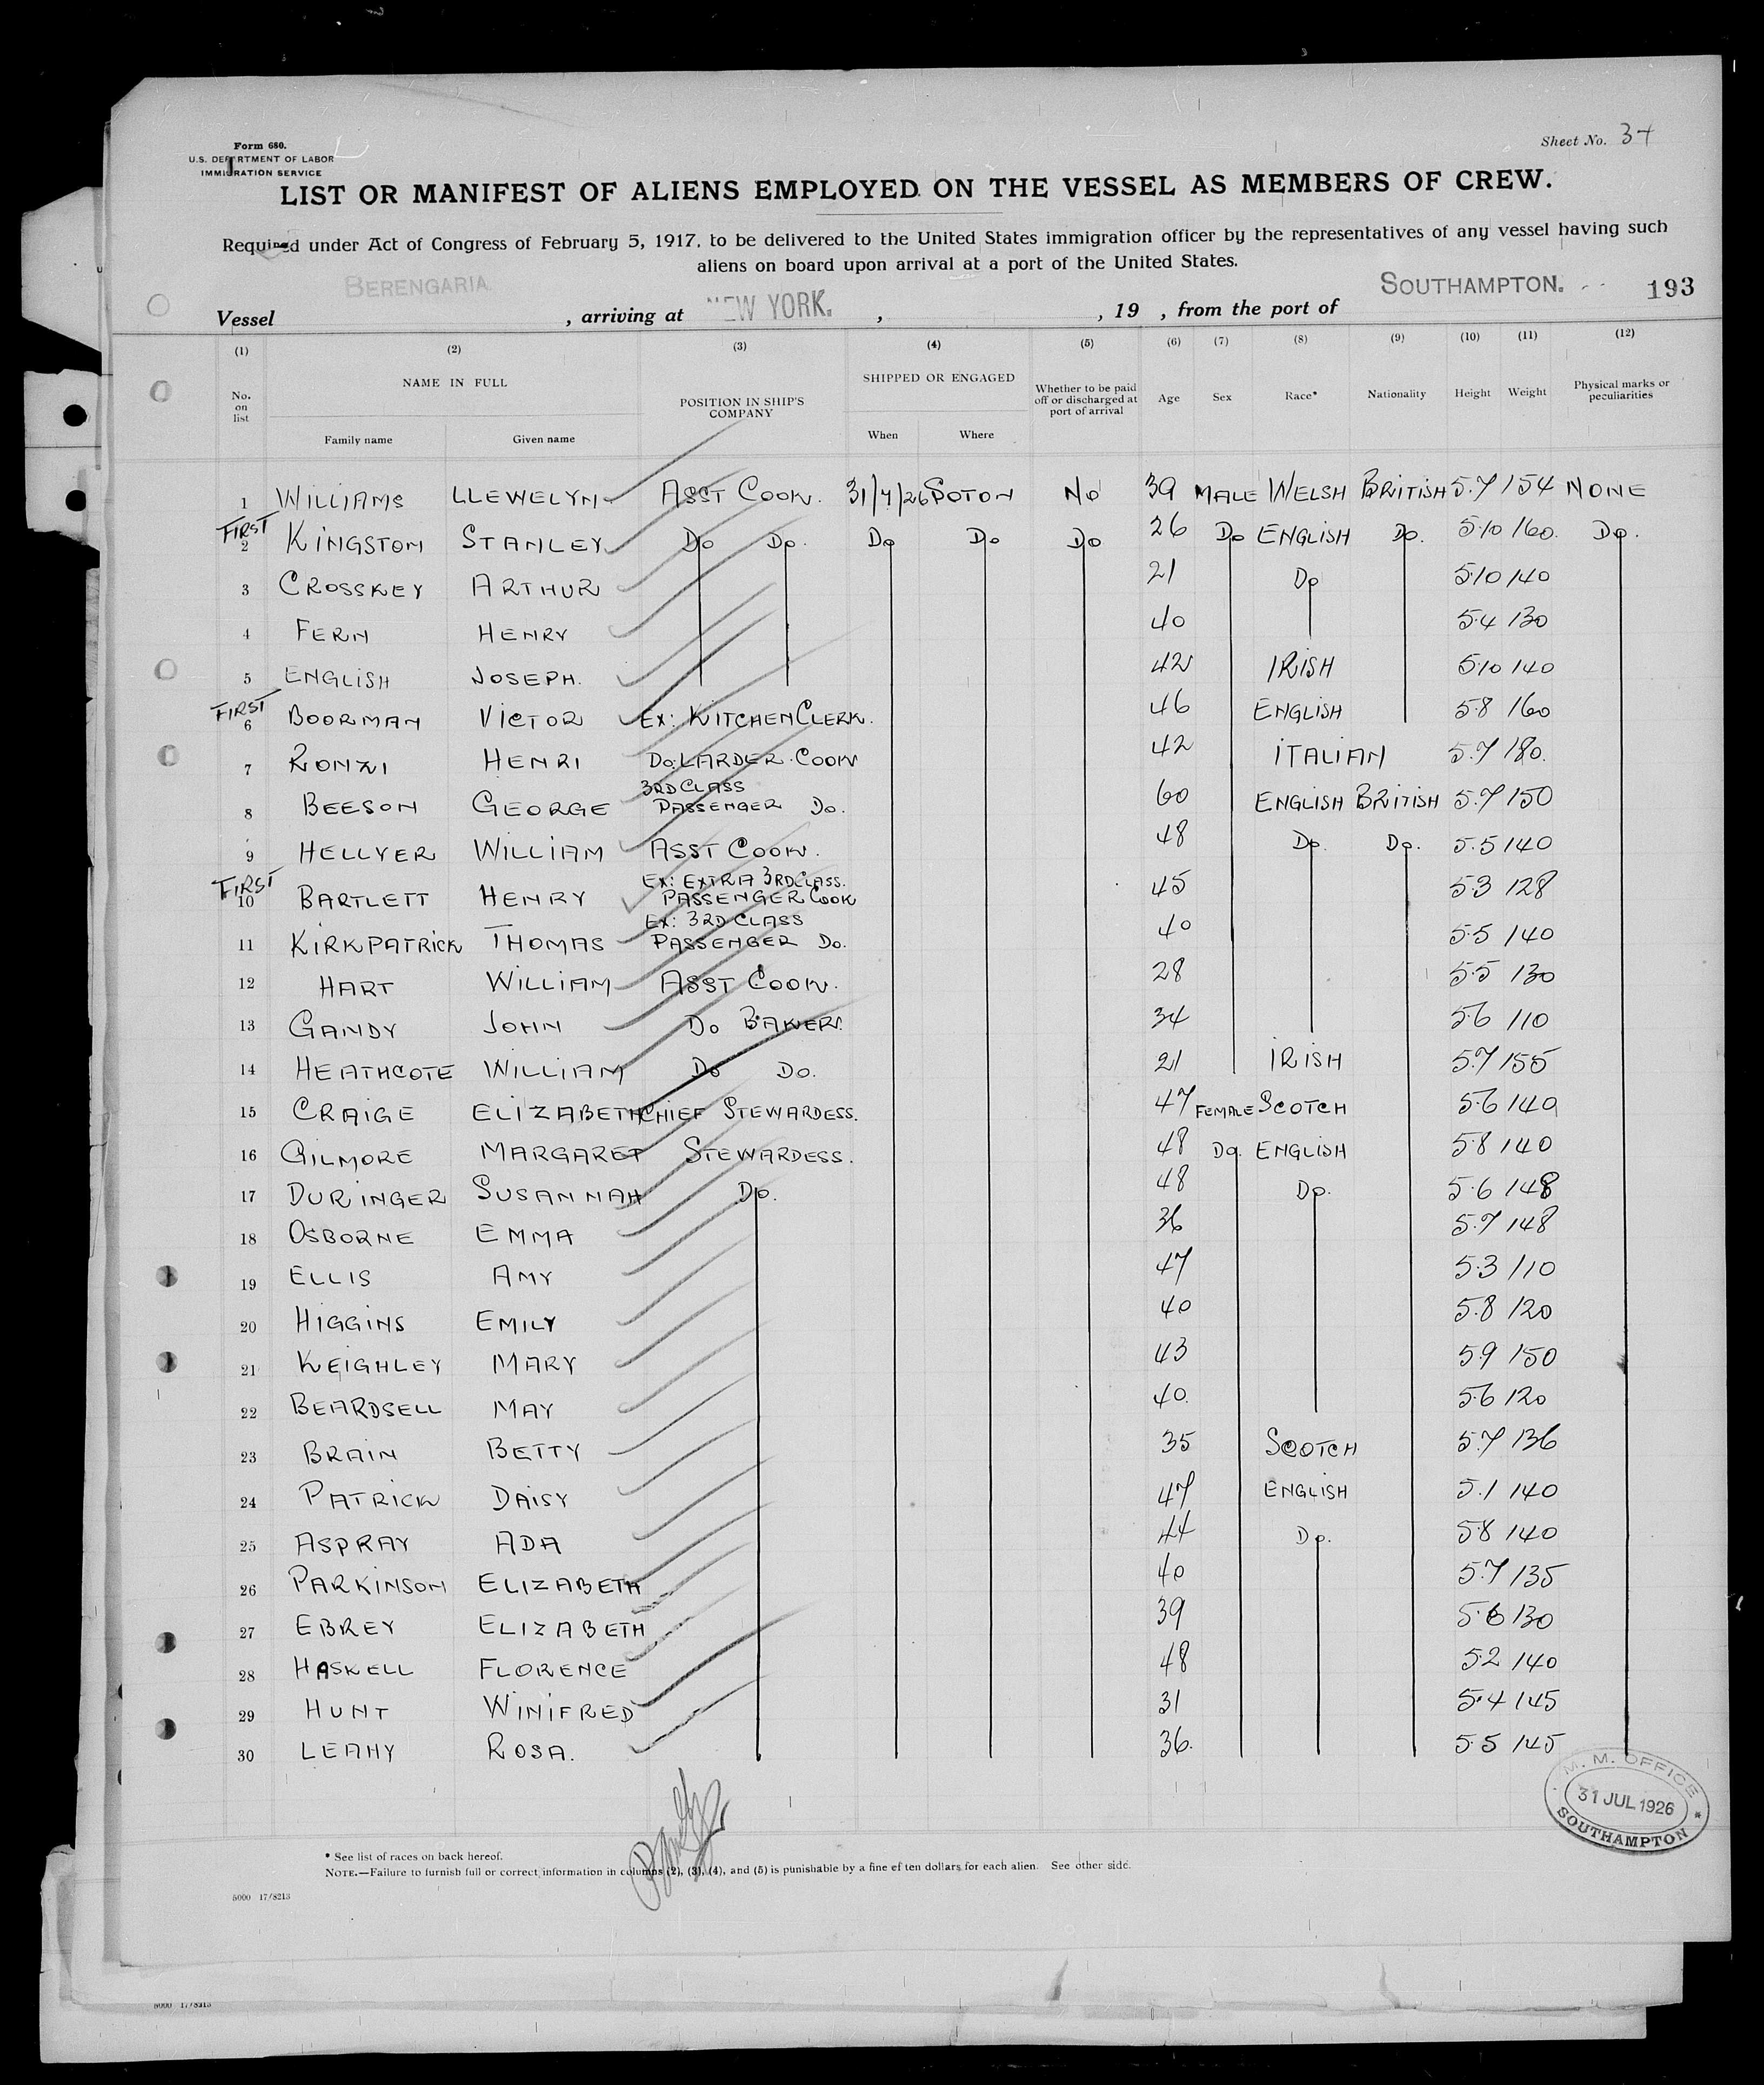 Form 680.
U.S. DEPARTMENT OF LABOR
IMMIGRATION SERVICE
Sheet No. 34
LIST OR MANIFEST OF ALIENS EMPLOYED ON THE VESSEL AS MEMBERS OF CREW.
Required under Act of Congress of February 5, 1917, to be delivered to the United States immigration officer by the representatives of any vessel having such
aliens on board upon arrival at a port of the United States.
Vessel BERENGARIA, arriving at NEW YORK. , , 19 , from the port of SOUTHAMPTON. 193
(1) (2) (3) (4) (5) (6) (7) (8) (9) (10) (11) (12)
No. on list NAME IN FULL POSITION IN SHIP'S COMPANY SHIPPED OR ENGAGED Whether to be paid off or discharged at port of arrival Age Sex Race* Nationality Height Weight Physical marks or peculiarities
Family name Given name When Where
1 WILLIAMS LLEWELYN ASST COOK. 31/7/26 SOTON NO 39 MALE WELSH BRITISH 5.7 154 NONE
FIRST
2 KINGSTON STANLEY DO DO. DO DO DO 26 DO ENGLISH DO. 5.10 160. DO.
3 CROSSKEY ARTHUR 21 DO 5.10 140
4 FERN HENRY 40 5.4 130
5 ENGLISH JOSEPH. 42 IRISH 5.10 140
FIRST
6 BOORMAN VICTOR EX: KITCHEN CLERK. 46 ENGLISH 5.8 160
7 RONZI HENRI DO. LARDER COOK 42 ITALIAN 5.7 180.
8 BEESON GEORGE 3RD CLASS PASSENGER DO. 60 ENGLISH BRITISH 5.7 150
9 HELLYER WILLIAM ASST COOK. 48 DO. DO. 5.5 140
FIRST
10 BARTLETT HENRY EX: EXTRA 3RD CLASS. PASSENGER COOK 45 5.3 128
11 KIRKPATRICK THOMAS EX: 3RD CLASS PASSENGER DO. 40 5.5 140
12 HART WILLIAM ASST COOK. 28 5.5 130
13 GANDY JOHN DO BAKER. 34 5.6 110
14 HEATHCOTE WILLIAM DO DO. 21 IRISH 5.7 155
15 CRAIGE ELIZABETH CHIEF STEWARDESS. 47 FEMALE SCOTCH 5.6 140
16 GILMORE MARGARET STEWARDESS. 48 DO. ENGLISH 5.8 140
17 DURINGER SUSANNAH DO. 48 DO. 5.6 148
18 OSBORNE EMMA 36 5.7 148
19 ELLIS AMY 47 5.3 110
20 HIGGINS EMILY 40 5.8 120
21 KEIGHLEY MARY 43 5.9 150
22 BEARDSELL MAY 40. 5.6 120
23 BRAIN BETTY 35 SCOTCH 5.7 136
24 PATRICK DAISY 47 ENGLISH 5.1 140
25 ASPRAY ADA 44 DO. 5.8 140
26 PARKINSON ELIZABETH 40 5.7 135
27 EBREY ELIZABETH 39 5.6 130
28 HASKELL FLORENCE 48 5.2 140
29 HUNT WINIFRED 31 5.4 145
30 LEAHY ROSA. 36. 5.5 145
M. M. OFFICE
31 JUL 1926
SOUTHAMPTON
* See list of races on back hereof.
NOTE.—Failure to furnish full or correct information in columns (2), (3), (4), and (5) is punishable by a fine of ten dollars for each alien. See other side.
5000 17/8213
5000 17/8213